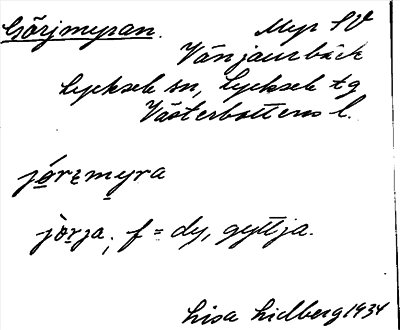 Görjmyran. Myr SV
Vänjaurbäck
Lycksele sn, Lycksele tg
Västerbottens l.
jörɛmyra
jörja, f = dy, gyttja.
Lisa Lidberg 1934